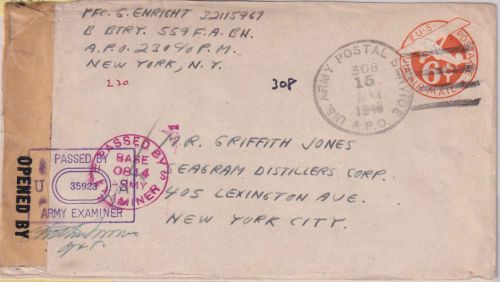 PFC. G. ENRIGHT 32115967
B BTRY. 559 F.A. BN.
A.P.O. 230 % P.M.
NEW YORK, N.Y.
230
308
U.S. POSTAGE
AIR MAIL
6¢
U.S. ARMY POSTAL SERVICE
308
15
A.P.O.
MR. GRIFFITH JONES
SEAGRAM DISTILLERS CORP.
405 LEXINGTON AVE.
NEW YORK CITY.
OPENED BY
PASSED BY
35923
ARMY EXAMINER
PASSED BY
BASE
0814
ARMY